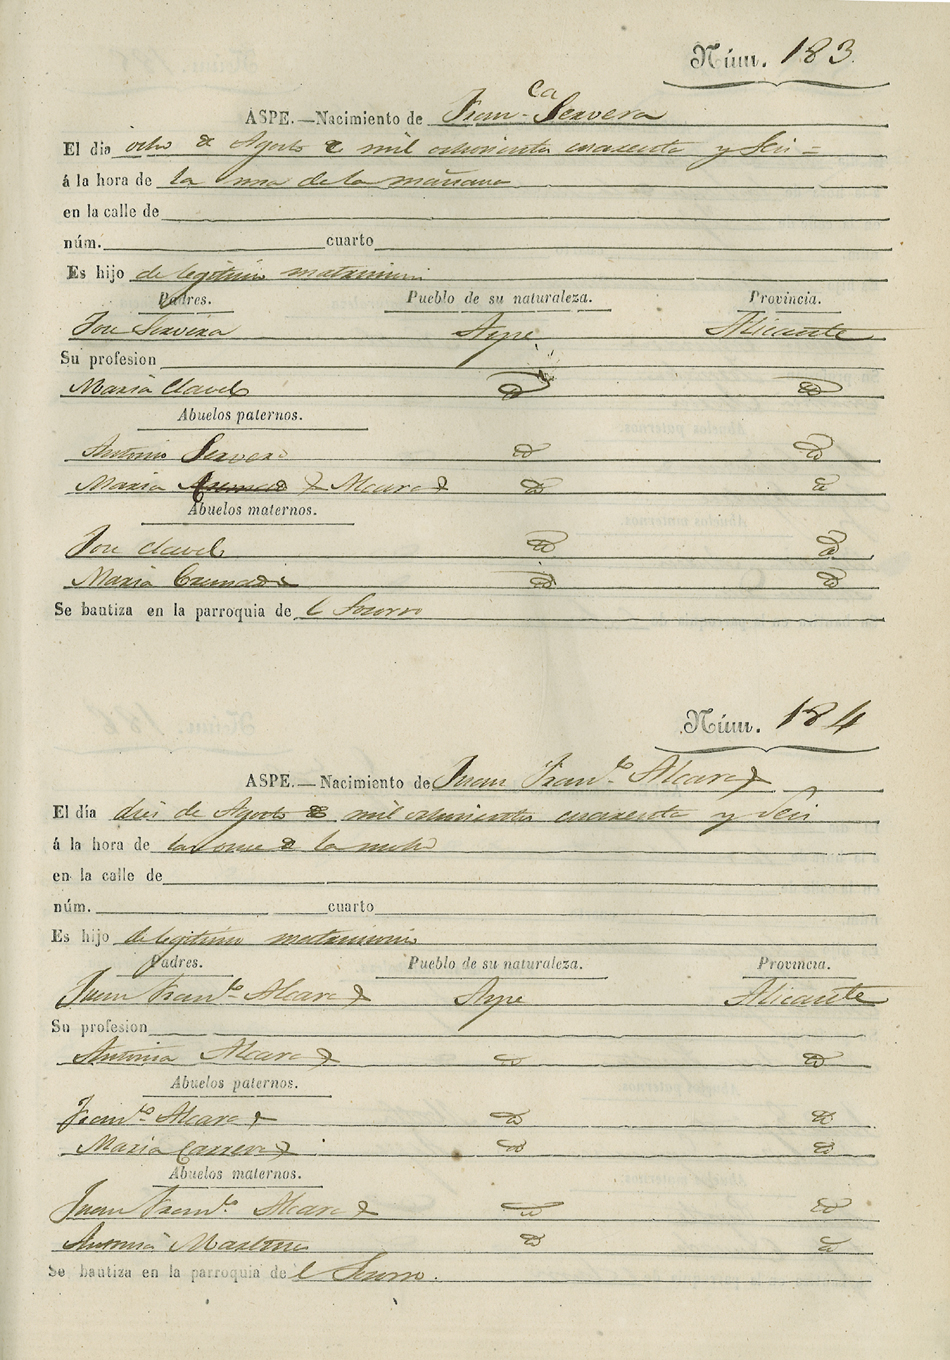 Núm. 183
ASPE.—Nacimiento de Fran.ca Servera
El dia ocho de Agosto de mil ochocientos cuarenta y Seis =
á la hora de la una de la mañana
en la calle de
núm. cuarto
Es hijo de legitimo matrimonio
Padres. Pueblo de su naturaleza. Provincia.
Jose Servera Aspe Alicante
Su profesion
Maria Clavel id id
Abuelos paternos.
Antonio Servera id id
Maria Alcaraz id id
Abuelos maternos.
Jose Clavel id id
Maria id id
Se bautiza en la parroquia de l Socorro
Núm. 184
ASPE.—Nacimiento de Juan Fran.co Alcaraz
El día dies de Agosto de mil ochocientos cuarenta y Seis
á la hora de las once de la noche
en la calle de
núm. cuarto
Es hijo de legitimo matrimonio
Padres. Pueblo de su naturaleza. Provincia.
Juan Fran.co Alcaraz Aspe Alicante
Su profesion
Antonia Alcaraz id id
Abuelos paternos.
Fran.co Alcaraz id id
Maria id id
Abuelos maternos.
Juan Fran.co Alcaraz id id
Antonia Martinez id id
Se bautiza en la parroquia de l Socorro.